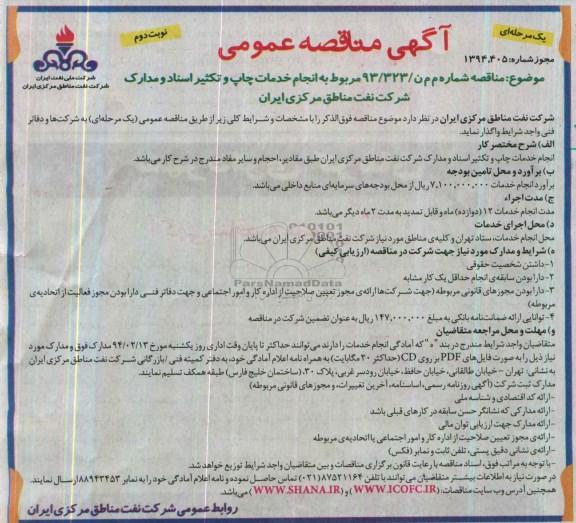 یک مرحله‌ای
آگهی مناقصه عمومی
نوبت دوم
شرکت ملی نفت ایران
شرکت نفت مناطق مرکزی ایران
مجوز شماره: ۱۳۹۴.۴۰۵
موضوع: مناقصه شماره م م ن/۹۳/۳۲۳ مربوط به انجام خدمات چاپ و تکثیر اسناد و مدارک
شرکت نفت مناطق مرکزی ایران
شرکت نفت مناطق مرکزی ایران در نظر دارد موضوع مناقصه فوق‌الذکر را با مشخصات و شرایط کلی زیر از طریق مناقصه عمومی (یک مرحله‌ای) به شرکت‌ها و دفاتر
فنی واجد شرایط واگذار نماید.
الف) شرح مختصر کار
انجام خدمات چاپ و تکثیر اسناد و مدارک شرکت نفت مناطق مرکزی ایران طبق مقادیر، احجام و سایر مفاد مندرج در شرح کار می‌باشد.
ب) برآورد و محل تامین بودجه
برآورد انجام خدمات ۷,۱۰۰,۰۰۰,۰۰۰ ریال از محل بودجه‌های سرمایه‌ای منابع داخلی می‌باشد.
ج) مدت اجراء
مدت انجام خدمات ۱۲ (دوازده) ماه و قابل تمدید به مدت ۲ ماه دیگر می‌باشد.
د) محل اجرای خدمات
محل انجام خدمات، ستاد تهران و کلیه‌ی مناطق مورد نیاز شرکت نفت مناطق مرکزی ایران می‌باشد.
ه) شرایط و مدارک مورد نیاز جهت شرکت در مناقصه (ارزیابی کیفی)
۱- داشتن شخصیت حقوقی
۲- دارا بودن سابقه‌ی انجام حداقل یک کار مشابه
۳- دارا بودن مجوزهای قانونی مربوطه (جهت شرکت‌ها ارائه‌ی مجوز تعیین صلاحیت از اداره کار و امور اجتماعی و جهت دفاتر فنی دارا بودن مجوز فعالیت از اتحادیه‌ی
مربوطه)
۴- توانایی ارائه ضمانت‌نامه بانکی به مبلغ ۱۴۷,۰۰۰,۰۰۰ ریال به عنوان تضمین شرکت در مناقصه
و) مهلت و محل مراجعه متقاضیان
متقاضیان واجد شرایط مندرج در بند "ه" که آمادگی انجام خدمات را دارند می‌توانند حداکثر تا پایان وقت اداری روز یکشنبه مورخ ۹۴/۰۲/۱۳ مدارک فوق و مدارک مورد
نیاز ذیل را به صورت فایل‌های PDF بر روی CD (حداکثر ۲۰ مگابایت) به همراه نامه اعلام آمادگی خود، به دفتر کمیته فنی / بازرگانی شرکت نفت مناطق مرکزی ایران
به نشانی: تهران - خیابان طالقانی، خیابان حافظ، خیابان رودسر غربی، پلاک ۳۰، (ساختمان خلیج فارس) طبقه همکف تسلیم نمایند.
مدارک ثبت شرکت (آگهی روزنامه رسمی، اساسنامه، آخرین تغییرات، و مجوزهای قانونی مربوطه)
- ارائه کد اقتصادی و شناسه ملی
- ارائه مدارکی که نشانگر حسن سابقه در کارهای قبلی باشد
- ارائه مدارک جهت ارزیابی توان مالی
- ارائه‌ی مجوز تعیین صلاحیت از اداره کار و امور اجتماعی یا اتحادیه‌ی مربوطه
- ارائه‌ی نشانی دقیق پستی، تلفن ثابت و نمابر (فکس)
- با توجه به مراتب فوق، اسناد مناقصه با رعایت قانون برگزاری مناقصات و بین متقاضیان واجد شرایط توزیع خواهد شد.
در صورت نیاز به اطلاعات بیشتر متقاضیان می‌توانند با تلفن ۸۷۵۲۱۱۶۴ (۰۲۱) تماس حاصل نموده و نامه اعلام آمادگی خود را به نمابر ۸۸۹۴۳۴۵۳ ارسال نمایند.
همچنین آدرس وب سایت مناقصات: (WWW.ICOFC.IR) و (WWW.SHANA.IR) می‌باشد.
روابط عمومی شرکت نفت مناطق مرکزی ایران
ParsNamadData